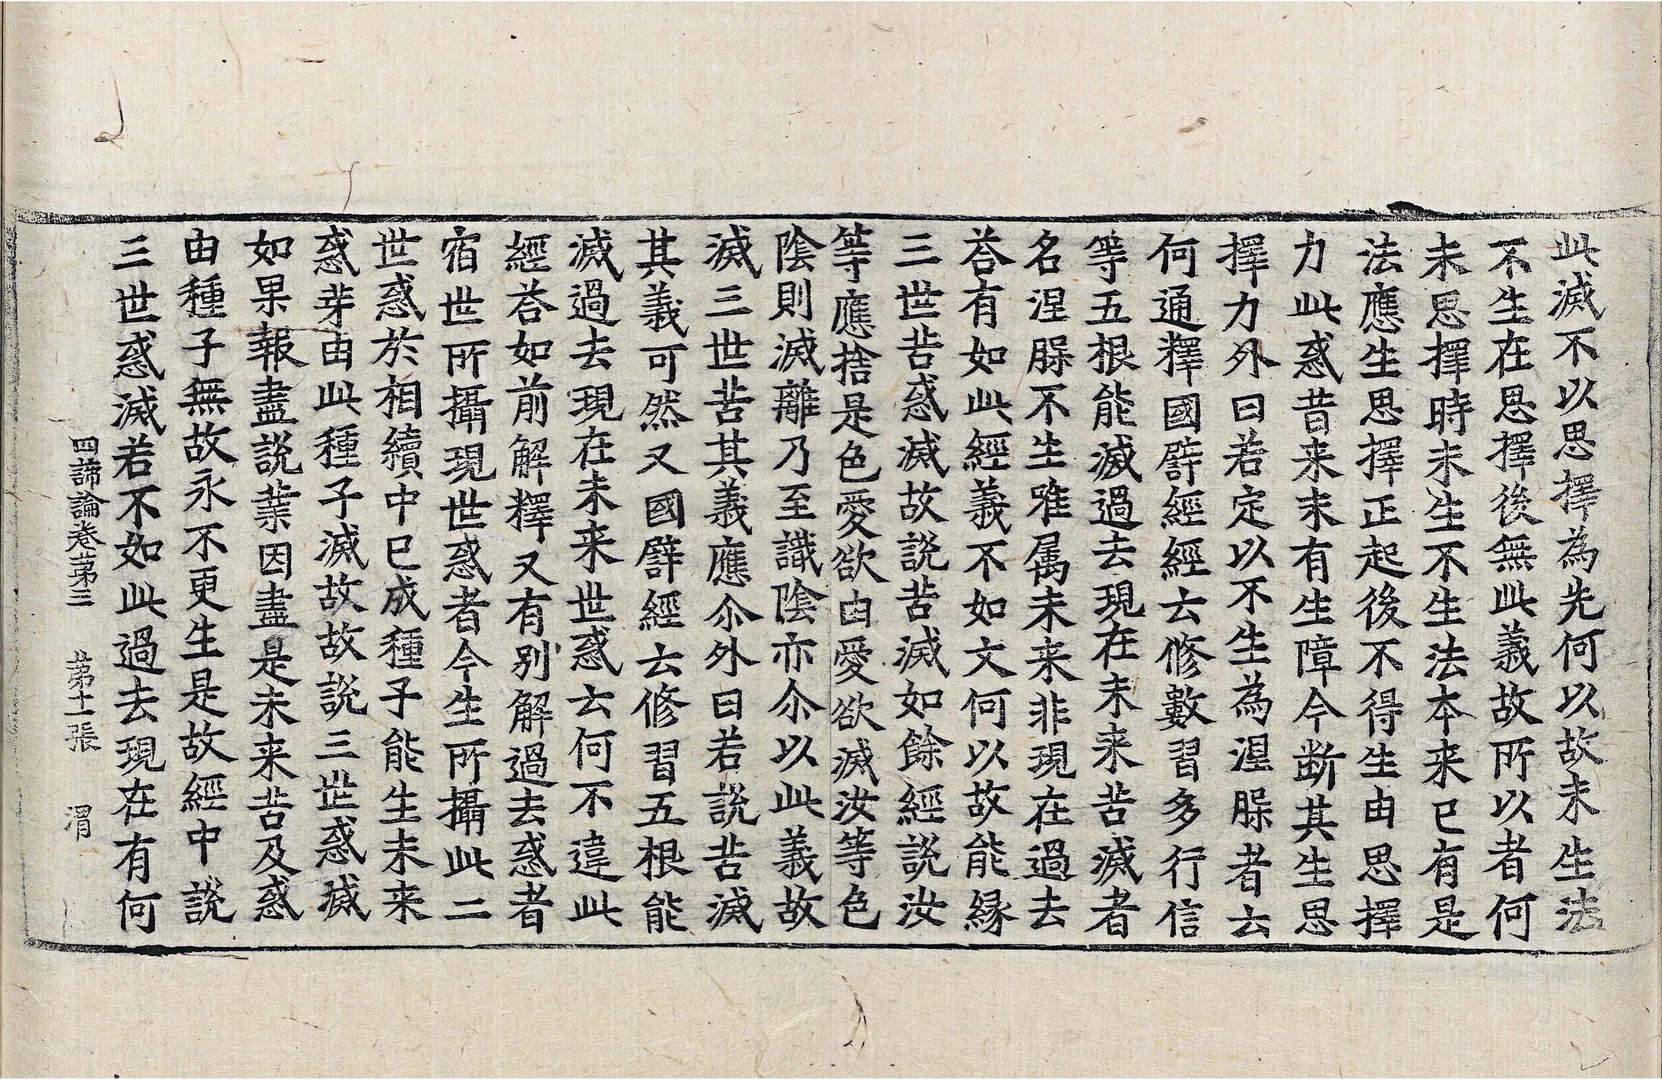 此滅不以思擇為先何以故未生法
不生在思擇後無此義故所以者何
未思擇時未生不生法本来已有是
法應生思擇正起後不得生由思擇
力此惑昔来未有生障今斷其生思
擇力外曰若定以不生為涅槃者云
何通釋國譬經經云修數習多行信
等五根能滅過去現在未来苦滅者
名涅槃不生唯属未来非現在過去
荅有如此經義不如文何以故能縁
三世苦惑滅故說苦滅如餘經說汝
等應捨是色愛欲由愛欲滅汝等色
陰則滅離乃至識陰亦尒以此義故
滅三世苦其義應尒外曰若說苦滅
其義可然又國譬經云修習五根能
滅過去現在未来世惑云何不違此
經荅如前解釋又有別解過去惑者
宿世所攝現世惑者今生所攝此二
世惑於相續中已成種子能生未来
惑芽由此種子滅故故說三世惑滅
如果報盡說業因盡是未来苦及惑
由種子無故永不更生是故經中說
三世惑滅若不如此過去現在有何
四諦論卷第三 第十一張 渭